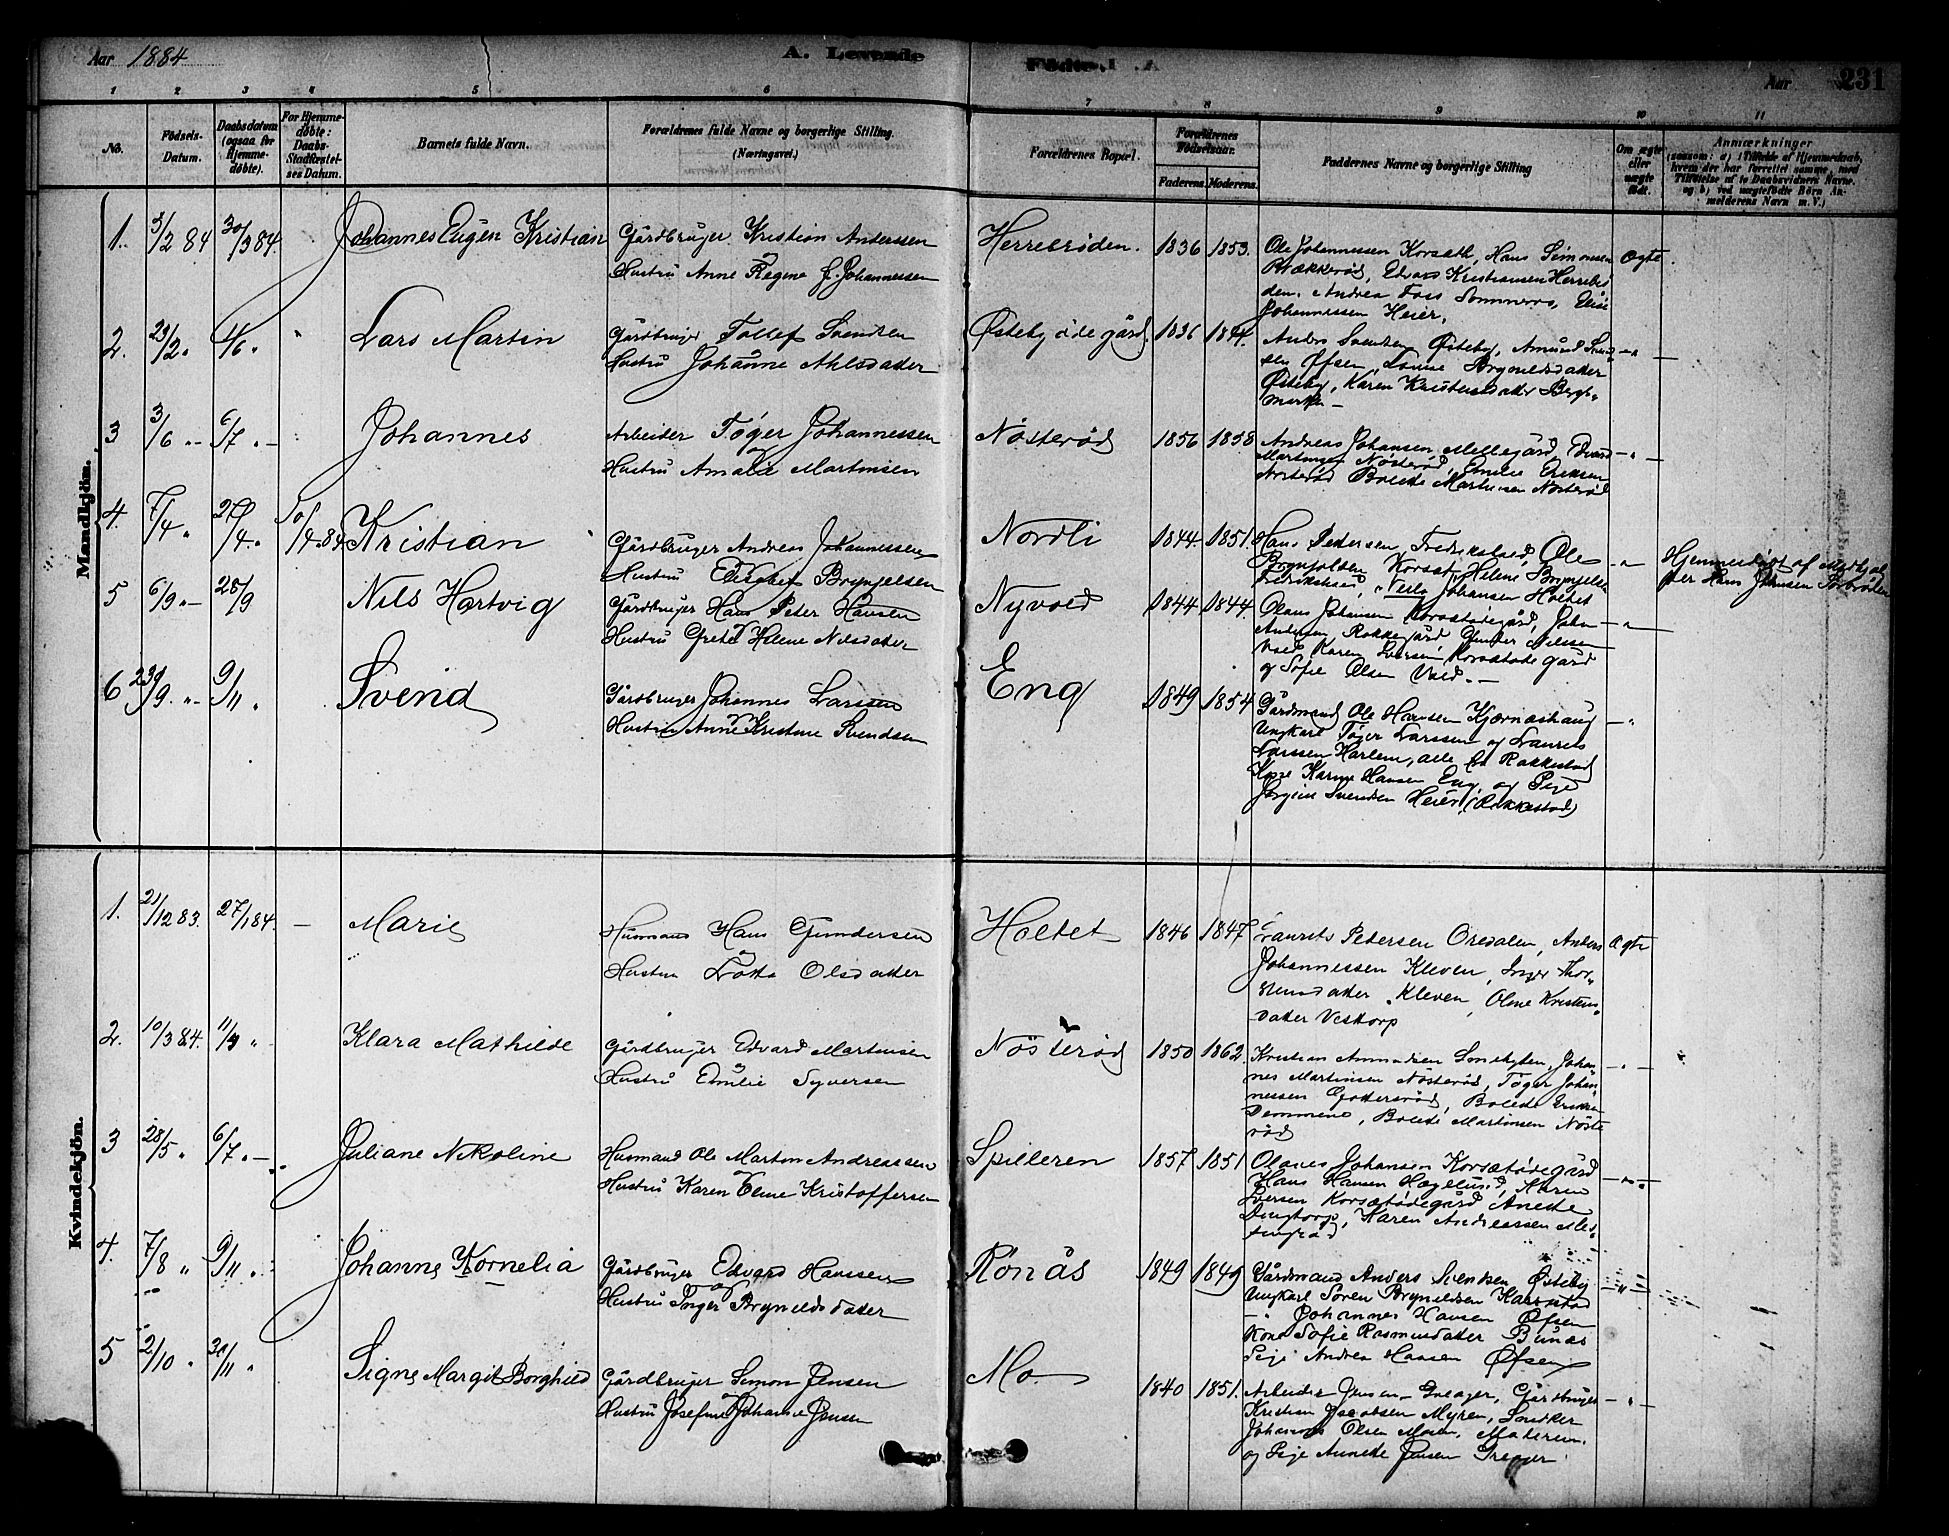 Aar 1884
A. Levende
Födte.
Aar
231
1 2 3 4 5 6 7 8 9 10 11
No.
Födsels-Datum.
Daabsdatum (ogsaa for Hjemme-døbte).
For Hjemme-døbte: Daabs-Stadfæstel-ses Datum.
Barnets fulde Navn.
Forældrenes fulde Navne og borgerlige Stilling.
(Næringsvei.)
Forældrenes Bopæl.
Forældrenes Födselsaar.
Faderens. Moderens.
Faddernes Navne og borgerlige Stilling
Om ægte eller uægte født.
Anmærkninger
(saasom: a) i Tilfælde af Hjemmedaab,
hvem der har forrettet samme, med
Tilföielse af to Daabsvidners Navne.
og b) ved uægtefödte Börn An-
melderens Navn m. V.)
Mandkjön.
1. 3/2 84 30/3 84. Johannes Eugen Kristian
Gårdbruger Kristian Anderssen
og
Hustru Anne Regine f. Johannessen
Herrebrøden. 1836 1853.
Ole Johannessen Korsæth, Hans Simonsen
Brækkerød, Edvard Kristiansen Herrebrö
den, Andrea Foss Sommerro, Elise
Johannessen Heier.
Ægte
2. 23/2 " 4/6 " " Lars Martin
Gårdbruger Tollef Svendsen
Hustru Johanne Athlsdatter
Østeby ödegård. 1836 1844.
Anders Svendsen Østeby, Amund Svend
sen Øfsen, Lovise Brynildsdatter
Østeby, Karen Kristensdatter Bergs-
marken —
3 3/6 " — 6/7 " — Johannes
Arbeider Tøger Johannessen
og
Hustru Amalie Martinsen
Nösteröd 1856 1858
Andreas Johansen Mellegård, Edvard
Martinsen Nösteröd, Emilie Eriksen
Nösteröd Bolette Martinsen Nösteröd
4. 7/4 " 27/4. " 10/4. 84 Kristian
Gårdbruger Andreas Johannessen
Hustru Elisabet Brynjelsen
Nordli 1844. 1851.
Hans Pedersen Fredrikstad, Ole
Brynjolsen Korsæt, Helene Brynjelsen
Fredrikstad, Nella Johansen Holtet
Hjemmedöbt af
der Hans Jensen
5 6/9 " — 28/9 Nils Hartvig
Gårdbruger Hans Peter Hansen
og
Hustru Grethe Helene Nilsdatter
Nyvold 1844 1844.
Olaus Johansen Korsætödegård, John
Andersen Rakkegård Gunder Nilsen
Vold, Karen Iversen Korsætödegård
og Sofie Olsen Vold. —
6 23/9. " — 9/11 " Svend
Gårdbruger Johannes Larssen
og
Hustru Anne Kristine Svendsen
Eng 1849 1854
Gårdmand Ole Hansen Kjærnåshaug
Ungkarl Tøger Larssen og Laurits
Larssen Harlem, alle fra Rakkestad
Kone Karine Hansen Eng, og Pige
Jörgine Svendsen Heier (Rakkestad)
Kvindekjön.
1. 21/12 83. 27/1 84. — Marie
Husmand Hans Gundersen
og
Hustru Lotte Olsdatter
Holtet 1846 1847
Laurits Petersen Oredalen, Anders
Johannessen Kleven, Inger Thor-
stensdatter Kleven, Oline Kristens-
datter Vesttorp
Ægte
2. 10/3 84. 11/4 " Klara Mathilde
Gårdbruger Edvard Martinsen
og
Hustru Emilie Syversen
Nösteröd 1850 1862.
Kristian Amundsen Smehytten, Johan-
nes Martinsen Nösteröd, Tøger Johan-
nessen Gottersröd, Bolette Eriksen
Demmene, Bolette Martinsen Nöste
röd
3 28/5 " 6/7. " — Juliane Nikoline
Husmand Ole Martin Andreassen
og
Hustru Karen Oline Kristoffersen
Spilleren 1857 1851
Olaves Johansen Korsætödegård
Hans Hansen Hæglund, Karen
Iversen Korsætödegård Anette
Karen Andreassen
4. 7/8 " 9/11 " Johanne Kornelia
Gårdbruger Edvard Hanssen
og
Hustru Inger Brynildsdatter
Rönås 1849 1849
Gårdmand Anders Svensen Østeby
Ungkarl Sören Brynildsen Harestad
— " — Johannes Hansen Øfsen
Kone Sofie Rasmusdatter Bunes
Pige Andrea Hansen Øfsen
5 2/10 " 30/11 " Signe Margit Borghild
Gårdbruger Simon Jensen
og
Hustru Josefine Johanne Jensen
Mo. 1840 1851.
Arbeider Jensen Greager, Gårdbruger
Kristian Jacobsen Myren, Snedker
Johannes Olsen Moen,
og Pige Annette Jensen Greager